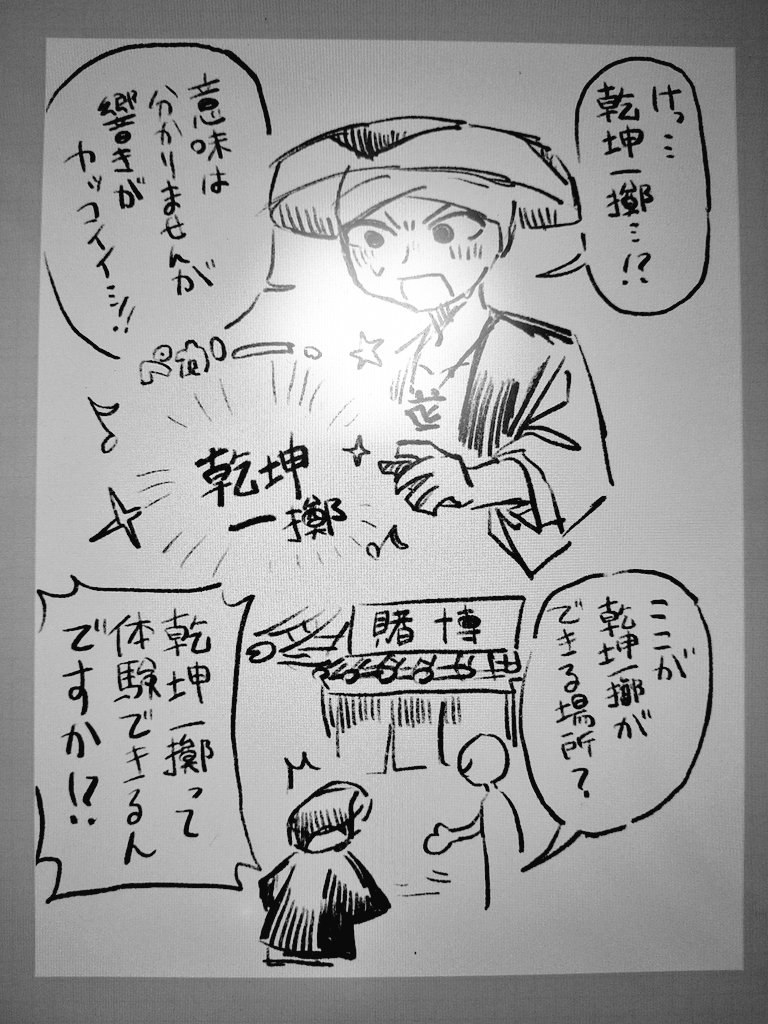 けっ…
乾坤一擲…!?
意味は
分かりませんが
響きが
カッコイイシ!!
乾坤
一擲
ここが
乾坤一擲が
できる場所?
賭博
乾坤一擲って
体験できるん
ですか!?